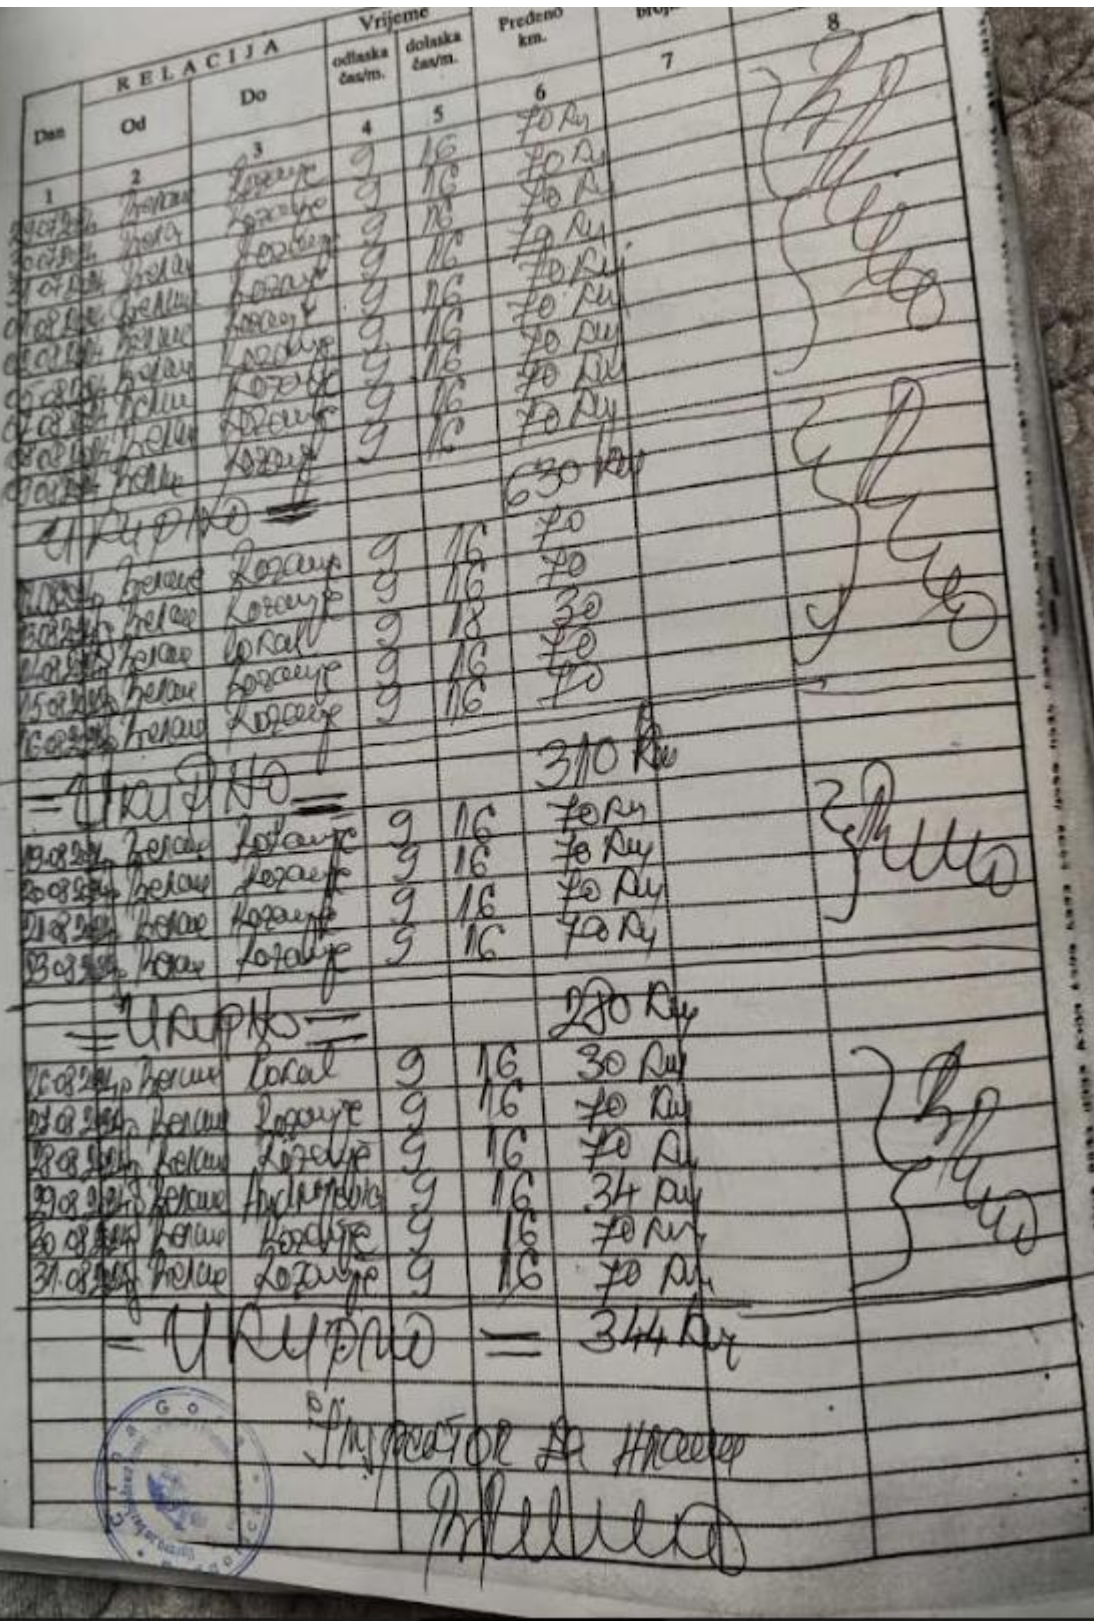 RELACIJA Vrijeme Pređeno 8
Dan Od Do odlaska čas/m. dolaska čas/m. km. 7
1 2 3 4 5 6
29.07.2024 Berane Rožaje 9 16 70 km
30.07.2024 Berane Rožaje 9 16 70 km
31.07.2024 Berane Rožaje 9 16 70 km
01.08.2024 Berane Rožaje 9 16 70 km
02.08.2024 Berane Rožaje 9 16 70 km
05.08.2024 Berane Rožaje 9 16 70 km
07.08.2024 Berane Rožaje 9 16 70 km
08.08.2024 Berane Rožaje 9 16 70 km
09.08.2024 Berane Rožaje 9 16 70 km
UKUPNO = 630 km
12.08.2024 Berane Rožaje 9 16 70
13.08.2024 Berane Rožaje 9 16 70
14.08.2024 Berane lokal 9 18 30
15.08.2024 Berane Rožaje 9 16 70
16.08.2024 Berane Rožaje 9 16 70
= UKUPNO = 310 km
19.08.2024 Berane Rožaje 9 16 70 km
20.08.2024 Berane Rožaje 9 16 70 km
21.08.2024 Berane Rožaje 9 16 70 km
23.08.2024 Berane Rožaje 9 16 70 km
= UKUPNO = 280 km
26.08.2024 Berane lokal 9 16 30 km
27.08.2024 Berane Rožaje 9 16 70 km
28.08.2024 Berane Rožaje 9 16 70 km
29.08.2024 Berane Andrijevica 9 16 34 km
30.08.2024 Berane Rožaje 9 16 70 km
31.08.2024 Berane Rožaje 9 16 70 km
= UKUPNO = 344 km
Inspektor za hranu